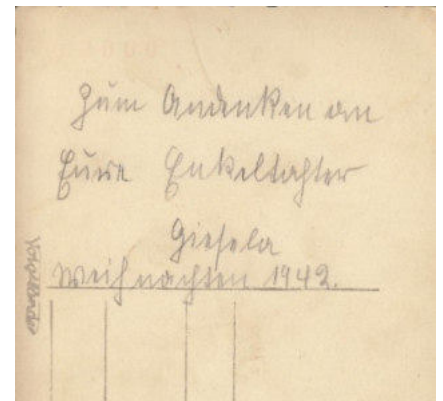 Zum Andenken an
Eure Enkeltochter
Giesela
Weihnachten 1942.
Voigtländer